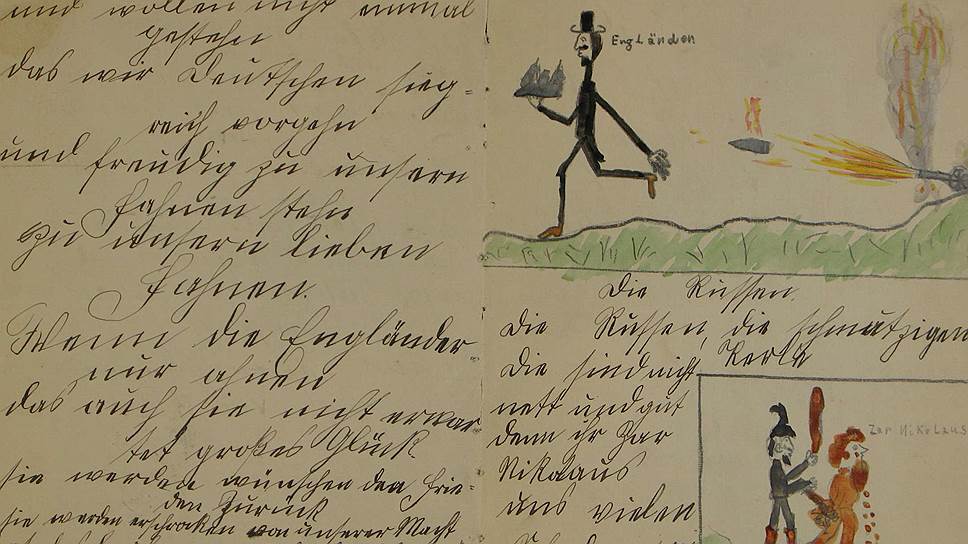 und wollen nicht einmal
gestehn
das wir Deutschen sieg-
reich vorgehn
und freudig zu unsern
Fahnen stehn
Zu unsern lieben
Fahnen.
Wenn die Engländer
nur ahnen
das auch sie nicht erwar-
tet großes Glück
sie werden wünschen den Frie-
den Zurück
sie werden erschrocken von unserer Macht
Engländer
Die Russen.
Die Russen, die schmutzigen
Kerle
Die sind nicht
nett und gut
denn ihr Zar
Nikolaus
uns vielen
Zar Nikolaus